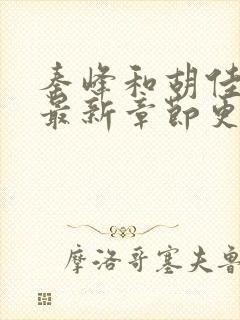 秦峰和胡佳
最新章节更
摩洛哥塞夫鲁